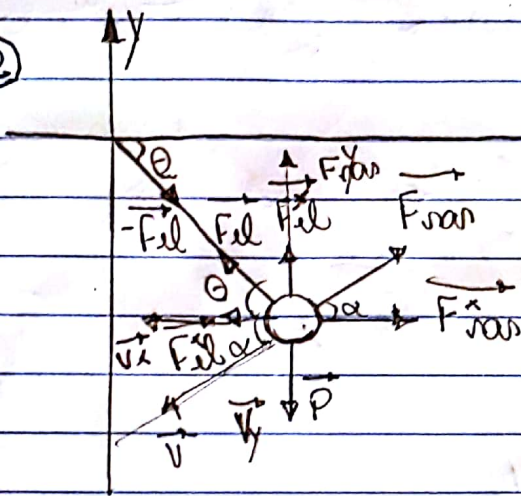 2
y
θ
F^y_ras
-F_el F_el F_el F_ras
θ α F^x_ras
v_x F^x_el α
P
v V_y